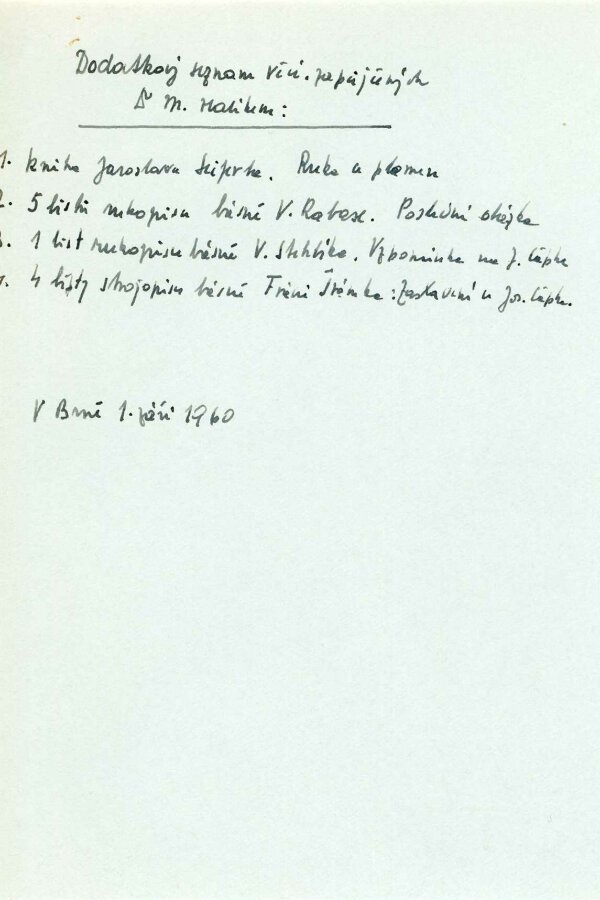 Dodatkový seznam věcí zapůjčených
Dr M. Halíkem:
1. kniha Jaroslava Seiferta. Ruka a plamen
2. 5 listů rukopisu básně V. Rabase. Poslední
3. 1 list rukopisu básně V. Stehlíka. Vzpomínka na J. Čapka
4. 4 listy strojopisu básně Fráni Šrámka: Zastavení u Jos. Čapka.
V Brně 1. září 1960